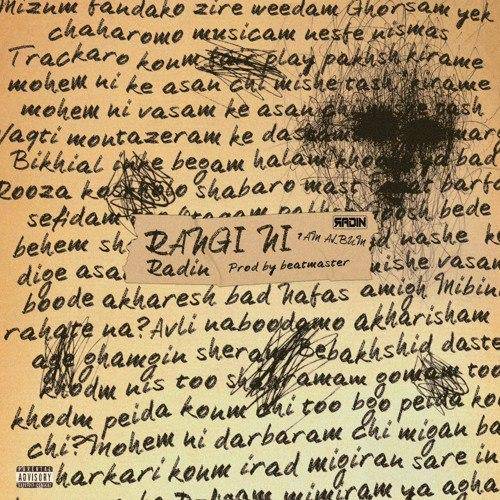 mizum fandako zire weedam Ghorsam yek
chaharomo musicam nesfe nismas
Trackaro konm play pakhsh kirame
mohem ni ke asan chi mishe tash kirame
mohem ni vasam ke asan tash
Vagti montazeram ke
Bikhial begam halam ya bad
Rooza shabaro mast barfa
sefidam bede
behem sh nashe ke
dige asa nishe vasa
boode akharesh bad Nafas amigh Mibin
rahate na? Avli naboodamo akharisham
ghamgin sheram Bebakhshid daste
khodm nis too shahramam gomam too
khodm peida konm chi too boo peida ko
chi? Mohem ni darbaram Chi migan ba
harkari konm irad migiran sare in
mimiram ya agha
RADIN
RANGI NI
1 AM ALBUM
Radin
Prod by beatmaster
PARENTAL
ADVISORY
EXPLICIT CONTENT